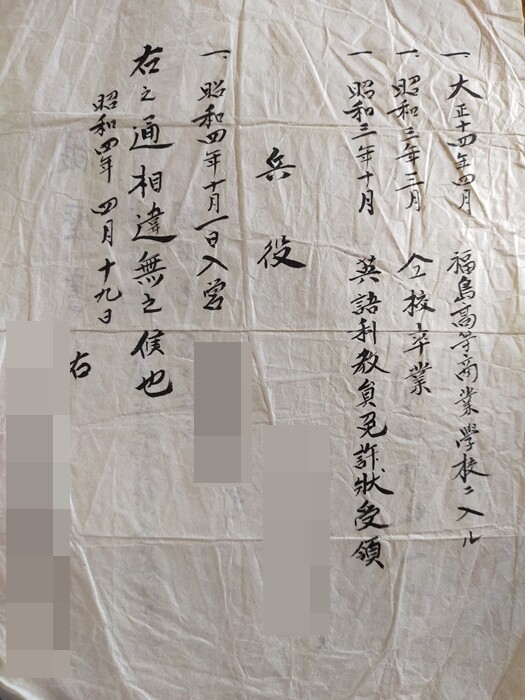 一、大正十四年四月 福島高等商業學校ニ入ル
一、昭和三年三月 仝校卒業
一 昭和三年十月 英語科教員免許狀受領
兵役
一、昭和四年十月一日入営
右之通相違無之候也
昭和四年四月十九日
右